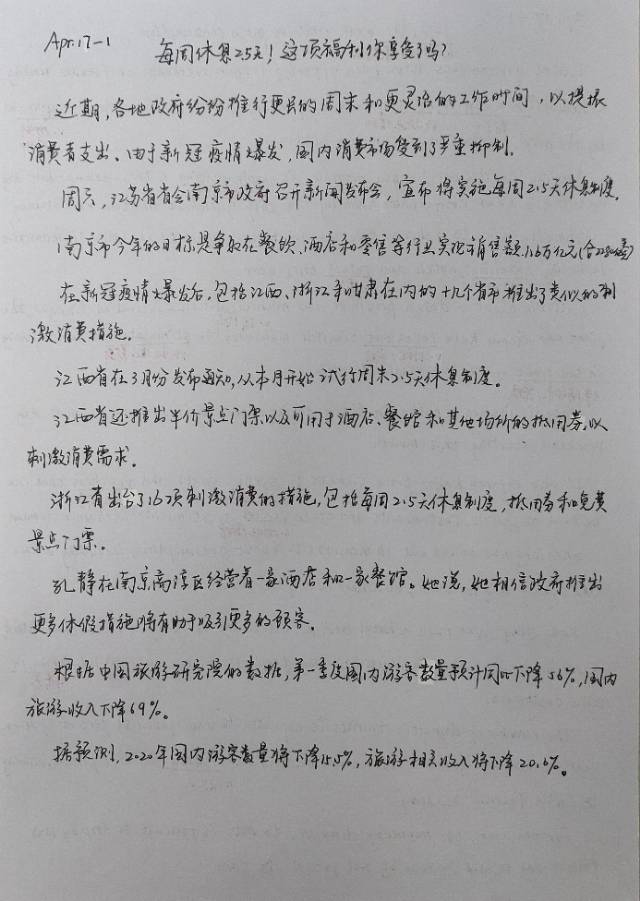 Apr.17-1 每周休息2.5天！这项福利你享受了吗？
近期，各地政府纷纷推行更长的周末和更灵活的工作时间，以提振
消费者支出。由于新冠疫情爆发，国内消费市场受到了严重抑制。
周六，江苏省省会南京市政府召开新闻发布会，宣布将实施每周2.5天休息制度。
南京市今年的目标是争取在餐饮、酒店和零售等行业实现销售额1.6万亿元(合2280亿
在新冠疫情爆发后，包括江西、浙江和甘肃在内的十几个省市推出了类似的刺
激消费措施。
江西省在3月份发布通知，从本月开始试行周末2.5天休息制度。
江西省还推出半价景点门票以及可用于酒店、餐馆和其他场所的抵用券，以
刺激消费需求。
浙江省出台了16项刺激消费的措施，包括每周2.5天休息制度，抵用券和免费
景点门票。
孔静在南京高淳区经营着一家酒店和一家餐馆。她说，她相信政府推出
更多休假措施将有助于吸引更多的顾客。
根据中国旅游研究院的数据，第一季度国内游客数量预计同比下降56%，国内
旅游收入下降69%。
据预测，2020年国内游客数量将下降15.5%，旅游相关收入将下降20.6%。